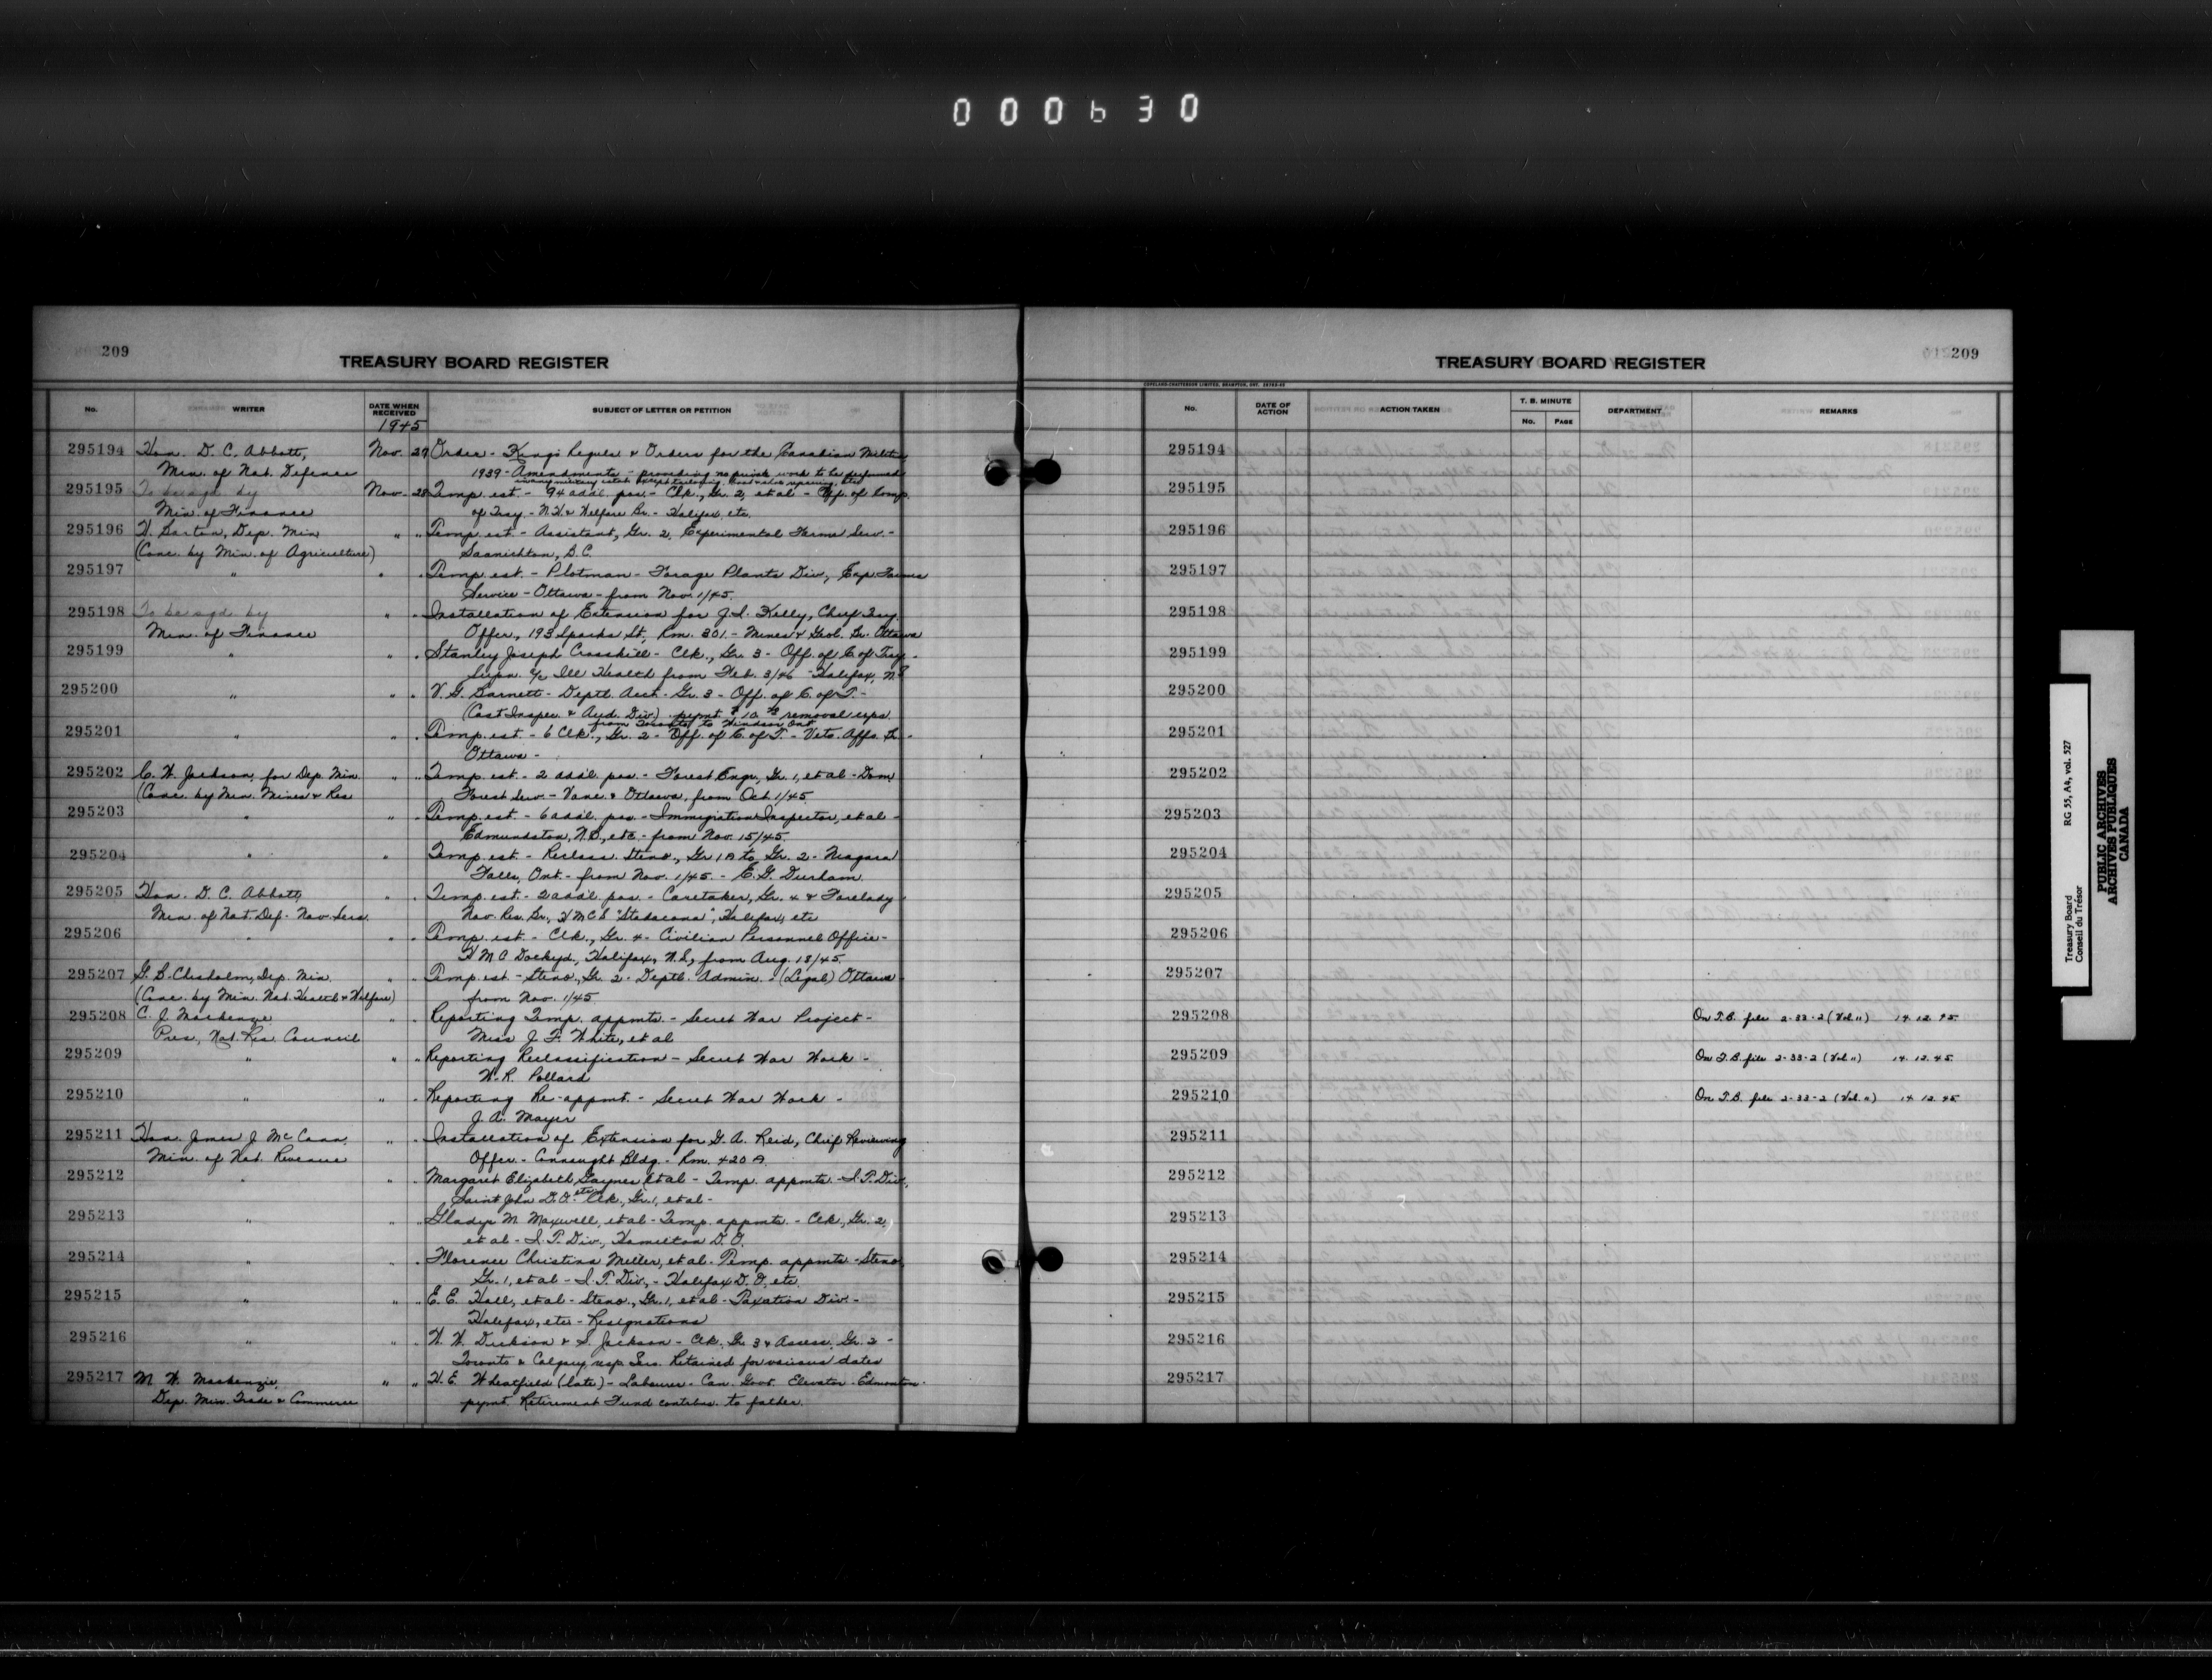 000630
209
TREASURY BOARD REGISTER
No. WRITER DATE WHEN RECEIVED SUBJECT OF LETTER OR PETITION
1945
295194 Hon. D. C. Abbott, Nov. 27 Order - King's Regula & Orders for the Canadian Militia
Min. of Nat. Defence 1939 - Amendments - providing no private work to be performed
in any military estab. except tailoring, boot & shoe repairing, etc
295195 To be sgd. by Nov. 28 Temp. est. - 94 addl. pos. - Clk., Gr. 2, et al - Off. of Comp.
Min. of Finance of Trsy. - N.H. & Welfare Br. - Halifax, etc.
295196 H. Barton, Dep. Min. " " Temp. est. - Assistant, Gr. 2, Experimental Farms Serv. -
(Conc. by Min. of Agriculture) Saanichton, B.C.
295197 " " " Temp. est. - Plotman - Forage Plants Div., Exp Farms
Service - Ottawa - from Nov. 1/45.
295198 To be sgd. by " " Installation of Extension for J. I. Kelly, Chief Trsy.
Min. of Finance Officer, 193 Sparks St., Rm. 301 - Mines & Geol. Br. Ottawa
295199 " " " Stanley Joseph Crosskill - Clk., Gr. 3 - Off. of C. of Trsy. -
Supn. a/c Ill Health from Feb. 3/46 - Halifax, N.S
295200 " " " V. G. Barnett - Deptl. Acct. Gr. 3 - Off. of C. of T. -
(Cost Inspec. & Aud. Div.) paymt. $10. removal exps.
from Toronto to Windsor Ont
295201 " " " Temp. est. - 6 Clk., Gr. 2 - Off. of C. of T. - Vets. Affs. Br. -
Ottawa -
295202 C. W. Jackson, for Dep. Min. " " Temp. est. - 2 addl. pos. - Forest Engr., Gr. 1, et al - Dom
(Conc. by Min. Mines & Res Forest Serv. - Vanc. & Ottawa, from Oct. 1/45.
295203 " " Temp. est. - 6 addl. pos. - Immigration Inspector, et al -
Edmundston, N.B., etc - from Nov. 15/45.
295204 " " Temp. est. - Reclass. Steno., Gr 1A to Gr. 2 - Niagara
Falls, Ont. - from Nov. 1/45. - E. G. Durham.
295205 Hon. D. C. Abbott, " " Temp. est. - 2 addl. pos. - Caretaker, Gr. 4 & Forelady
Min. of Nat Def. - Nav. Serv. Nav. Res. Br., H M C S "Stadacona", Halifax, etc
295206 " " " Temp. est. - Clk., Gr. 4 - Civilian Personnel Office -
H M C Dockyd., Halifax, N.S., from Aug. 18/45
295207 G. B. Chisholm, Dep. Min. " " Temp. est. - Steno., Gr. 2 - Deptl. Admin. - (Legal) Ottawa
(Conc. by Min. Nat. Health & Welfare) from Nov. 1/45
295208 C. J. Mackenzie " " Reporting Temp. appmts - Secret War Project -
Pres., Nat. Res. Council Miss J. F. White, et al
295209 " " " Reporting Reclassification - Secret War Work -
W. R. Pollard
295210 " " " Reporting Re-appmt. - Secret War Work -
J. A. Mayer
295211 Hon. James J. McCann, " " Installation of Extension for G. A. Reid, Chief Reviewing
Min. of Nat. Revenue Officer - Connaught Bldg. - Rm. 420 A.
295212 " " " Margaret Elizabeth Gaynes et al - Temp. appmts. - I. T. Div.,
Saint John D.O. etc Clk., Gr. 1, et al -
295213 " " " Gladys M. Maxwell, et al - Temp. appmts. - Clk., Gr. 2,
et al - I. T. Div., Hamilton D. O.
295214 " " " Florence Christina Miller, et al - Temp. appmts. - Steno.
Gr. 1, et al - I. T. Div., - Halifax D. O, etc.
295215 " " " E. E. Hall, et al - Steno., Gr. 1, et al - Taxation Div. -
Halifax, etc - Resignations
295216 " " " W. W. Dickson & S. Jackson - Clk. Gr. 3 & Assess. Gr. 2 -
Toronto & Calgary, resp Serv. Retained for various dates
295217 M. W. Mackenzie, " " H. E. Wheatfield (late) - Labourer - Can. Govt. Elevator - Edmonton -
Dep. Min. Trade & Commerce paymt Retirement Fund contribs. to father.
209
TREASURY BOARD REGISTER
COPELAND-CHATTERSON LIMITED, BRAMPTON, ONT.
No. DATE OF ACTION ACTION TAKEN T. B. MINUTE No. PAGE DEPARTMENT REMARKS
295194
295195
295196
295197
295198
295199
295200
295201
295202
295203
295204
295205
295206
295207
295208 On T.B. file 2-33-2 (Vol. ") 14. 12. 45
295209 On T.B. file 2-33-2 (Vol. ") 14. 12. 45
295210 On T.B. file 2-33-2 (Vol. ") 14. 12. 45
295211
295212
295213
295214
295215
295216
295217
Treasury Board RG 55, A4, vol. 527
Conseil du Trésor
PUBLIC ARCHIVES
ARCHIVES PUBLIQUES
CANADA